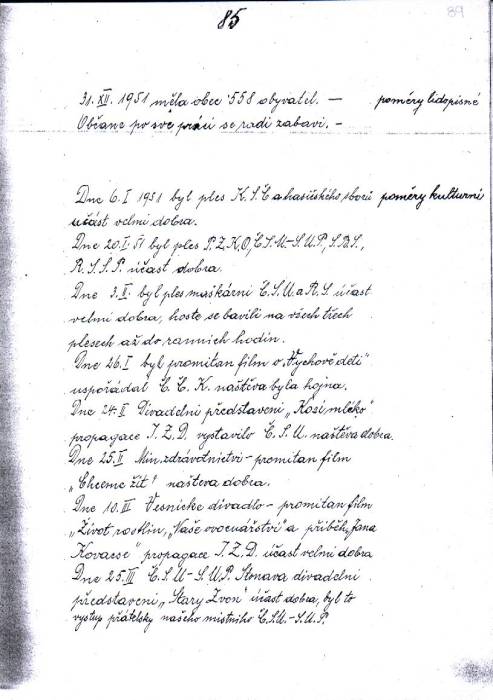 85
89
31. XII. 1951 měla obec 558 obyvatel. — poměry lidopisné
Občane po své práci se radi zabaví. –
Dne 6. I 1951 byl ples K.S.Č a hasičského sborů poměry kulturní
účást velmi dobra.
Dne 20. I. 51 byl ples P.Z.K.O, Č.S.U-S.U.P., S.B.S.,
R.S.S.P. účast dobra.
Dne 3. II. byl ples maškární Č.S.U. a R.S. účast
velmi dobra, hoste se bavili na všech třech
plesech až do ranních hodin.
Dne 26. I byl promitan film o „Vychově dětí"
uspořádal Č.Č.K. naštěva byla hojna.
Dne 24. II Divadelni představeni „Kosí mléko"
propagace J.Z.D. vystavilo Č.S.U. naštěva dobra.
Dne 25. II Min. zdrávotnictví - promitan film
„Chceme žít" našteva dobra.
Dne 10. III Vesnicke divadlo - promitan film
„Život rostlin, „Naše ovocnářství" a příběh „Jana
Kovacse" propagace J.Z.D. účast velmi dobra
Dne 25. III Č.S.U-S.U.P. Stonava divadelni
představeni „Stary Zvon" účast dobra, byl to
vystup přátelsky našeho mistniho Č.S.U.-S.U.P.